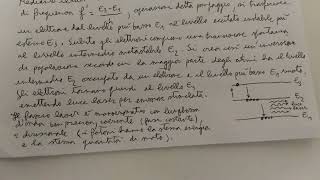 di frequenza f = E3-E1, operazione detta pompaggio, si trasferisce
un elettrone dal livello più basso E1 al livello eccitato instabile più
esterno E3. Subito gli elettroni compiono una transizione spontanea
al livello intermedio metastabile E2. Si crea così un'inversione
di popolazione secondo cui la maggior parte degli atomi ha il livello
intermedio E2 occupato da un elettrone e il livello più basso E1 vuoto.
Gli elettroni tornano quindi al livello E1
emettendo luce laser per emissione stimolata.
Il fascio laser è monocromatico con lunghezza
d'onda ben precisa, coerente (fase costante),
e direzionale (i fotoni hanno la stessa energia
e la stessa quantità di moto).
E3
E2
luce
laser
E1